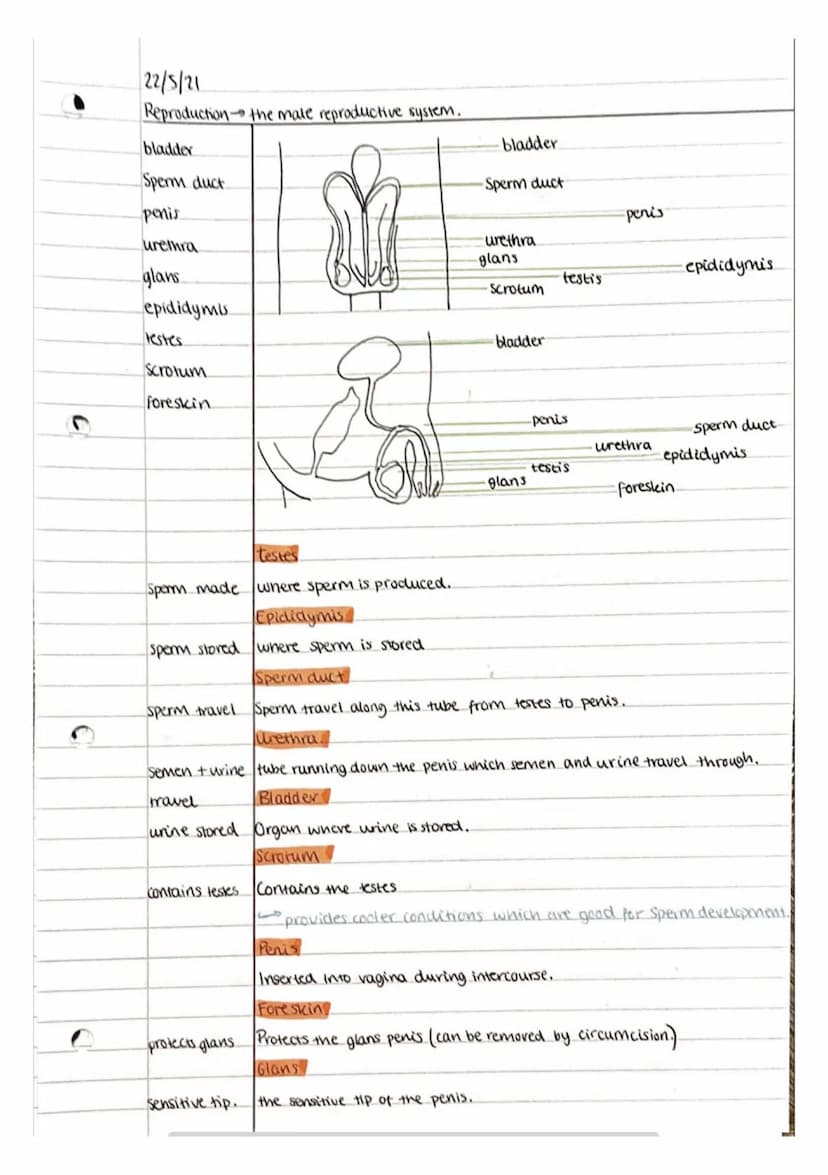 22/5/21
Reproduction → the male reproductive system.
bladder
Sperm duct
penis
urethra
glans
epididymis
testes
scrotum
foreskin
bladder
Sperm duct
penis
urethra
glans
epididymis
testis
scrotum
bladder
penis
sperm duct
urethra
epididymis
testis
glans
foreskin
testes
sperm made where sperm is produced.
Epididymis
sperm stored where sperm is stored
Sperm duct
sperm travel Sperm travel along this tube from testes to penis.
Urethra.
semen + urine tube running down the penis which semen and urine travel through.
travel Bladder
urine stored Organ where urine is stored.
Scrotum
contains testes Contains the testes
↪ provides cooler conditions which are good for sperm development.
Penis
Inserted into vagina during intercourse.
Foreskin
protects glans Protects the glans penis (can be removed by circumcision.)
Glans
sensitive tip. the sensitive tip of the penis.